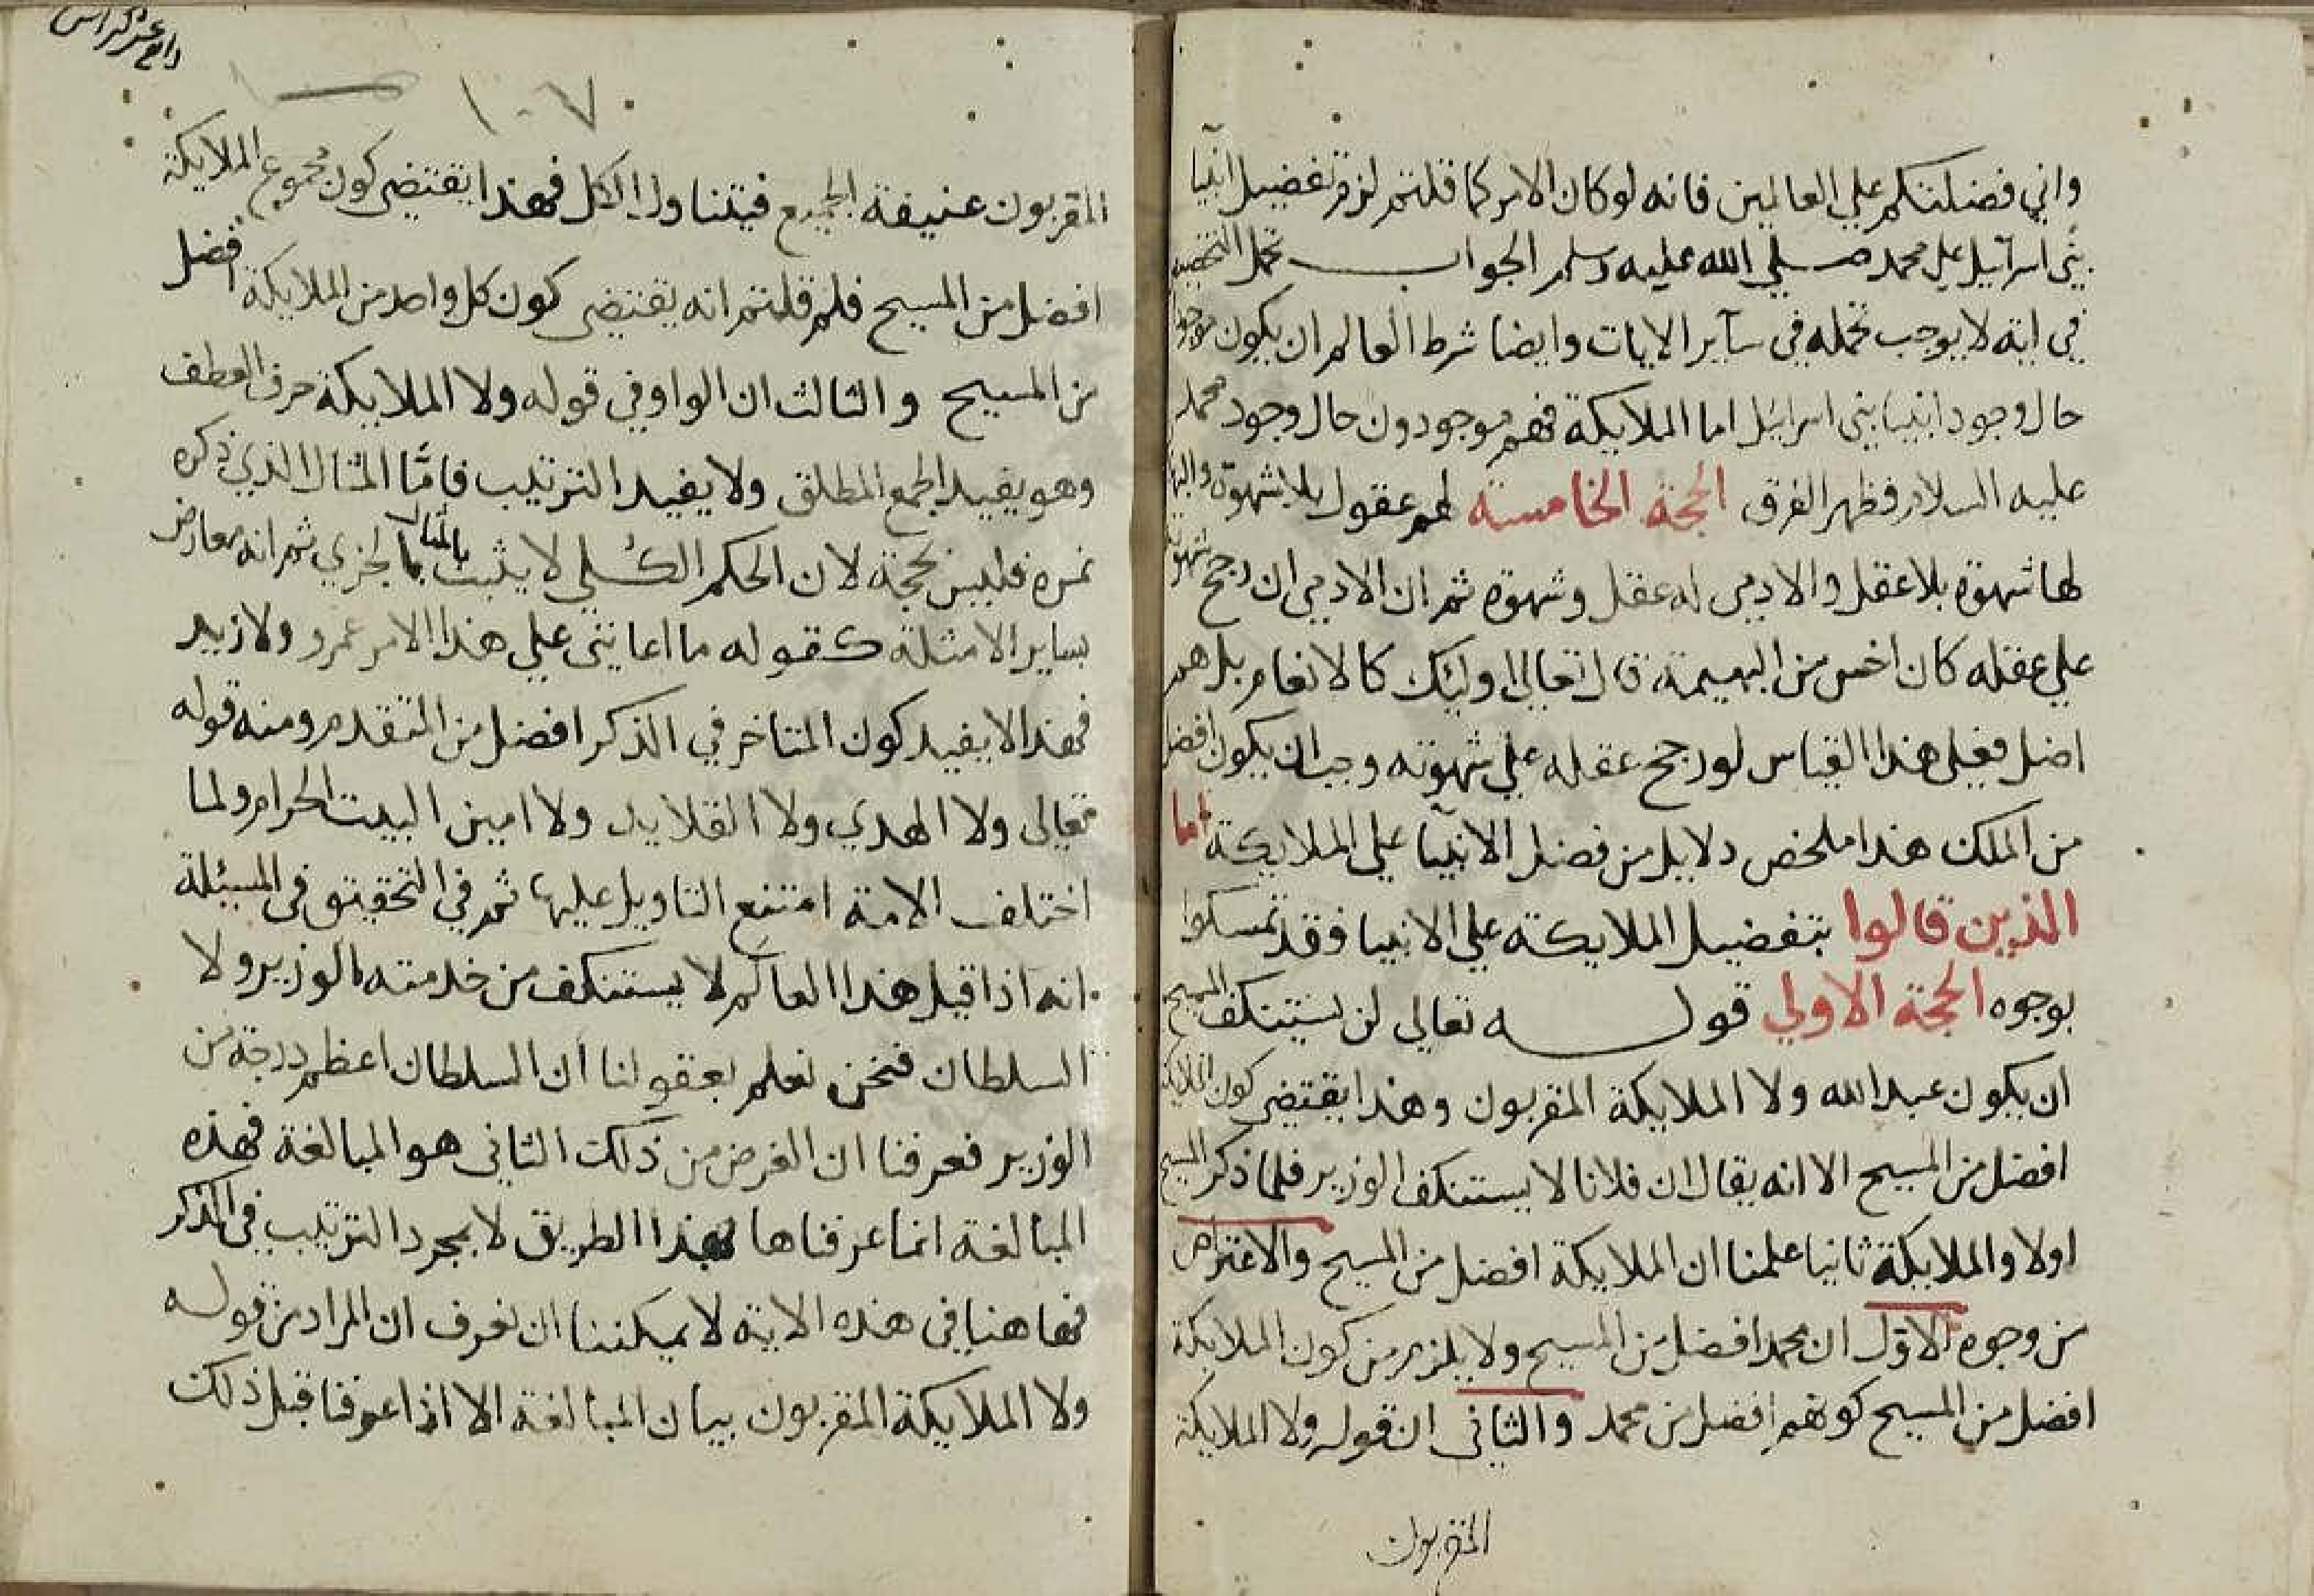 واني فضلتكم علي العالمين فانه لو كان الامر كما قلتم لزم تفضيل انبيا
بني اسرآئيل علي محمد صلي الله عليه وسلم الجواب تحمل التخصيص
في اية لا يوجب تحمله في سآير الايات وايضا شرط العالم ان يكون موجودا
حال وجود انبيا بني اسرائيل اما الملايكة فهم موجودون حال وجود محمد
عليه السلام فظهر الفرق الحجة الخامسة لهم عقول بلا شهوة والبهايم
لها شهوة بلا عقل والادمي له عقل وشهوة ثم ان الادمي ان رجح شهوته
علي عقله كان اخس من البهيمة قال تعالي اوليئك كالانعام بل هم
اضل فعلي هذا القياس لو رجح عقله علي شهوته وجب ان يكون افضل
من الملك هذا ملخص دلايل من فضل الانبيآ علي الملايكة اما
الذين قالوا بتفضيل الملايكة علي الانبيا فقد تمسكوا
بوجوه الحجة الاولي قوله تعالي لن يستنكف المسيح
ان يكون عبد الله ولا الملايكة المقربون وهذا يقتضي كون الملايكة
افضل من المسيح الا انه يقال ان فلانا لا يستنكف الوزير فلما ذكر المسيح
اولا والملايكة ثانيا علمنا ان الملايكة افضل من المسيح والاعتراض
من وجوه الاول ان محمد افضل من المسيح ولا يلزم من كون الملايكة
افضل من المسيح كونهم افضل من محمد والثاني ان قوله ولا الملايكة
المقربون
رابع عشر كراس
١٠٧
المقربون عنيفة الجميع فيتناول الكل فهذا يقتضي كون مجموع الملايكة
افضل من المسيح فلم قلتم انه يقتضي كون كل واحد من الملايكة افضل
من المسيح والثالث ان الواو في قوله ولا الملايكة حرف العطف
وهو يفيد الجمع المطلق ولا يفيد الترتيب فامّا المثال الذي ذكره
فليس بحجة لان الحكم الكلي لا يثبت بالمثال الجزي ثم انه معارض
بساير الامثلة كقوله ما اعانني علي هذا الامر عمرو ولا زيد
فهذا لا يفيد كون المتاخر في الذكر افضل من المتقدم ومنه قوله
تعالي ولا الهدي ولا القلايد ولا امين البيت الحرام ولما
اختلف الامة امتنع التاويل عليها ثم في التحقيق في المسئلة
انه اذا قيل هذا العالم لا يستنكف من خدمته الوزير ولا
السلطان فنحن نعلم بعقولنا ان السلطان اعظم درجة من
الوزير فعرفنا ان الغرض من ذلك الثاني هو المبالغة فهذه
المبالغة انما عرفناها بهذا الطريق لا بمجرد الترتيب في الذكر
فهاهنا في هذه الاية لا يمكننا ان نعرف ان المراد من قوله
ولا الملايكة المقربون بيان المبالغة الا اذا عرفنا قبل ذلك